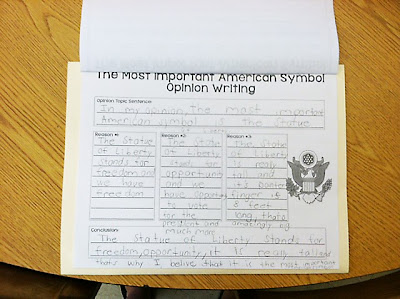 The Most Important American Symbol
Opinion Writing
Opinion Topic Sentence:
In my opinion, the most important
American symbol is the Statue
Reason #1
The Statue
of Liberty
stands for
freedom and
we have
freedom
Reason #2
The Statue
of Liberty
stand for
opportunity
and we
have
to vote
for the
president and
much more
Reason #3
The Statue
of Liberty
is really
tall and
it's pointer
finger is
8 feet
long, that's
amazingly big
Conclusion:
The Statue of Liberty stands for
freedom, opportunity, it is really tall
that's why I belive that it is the most important